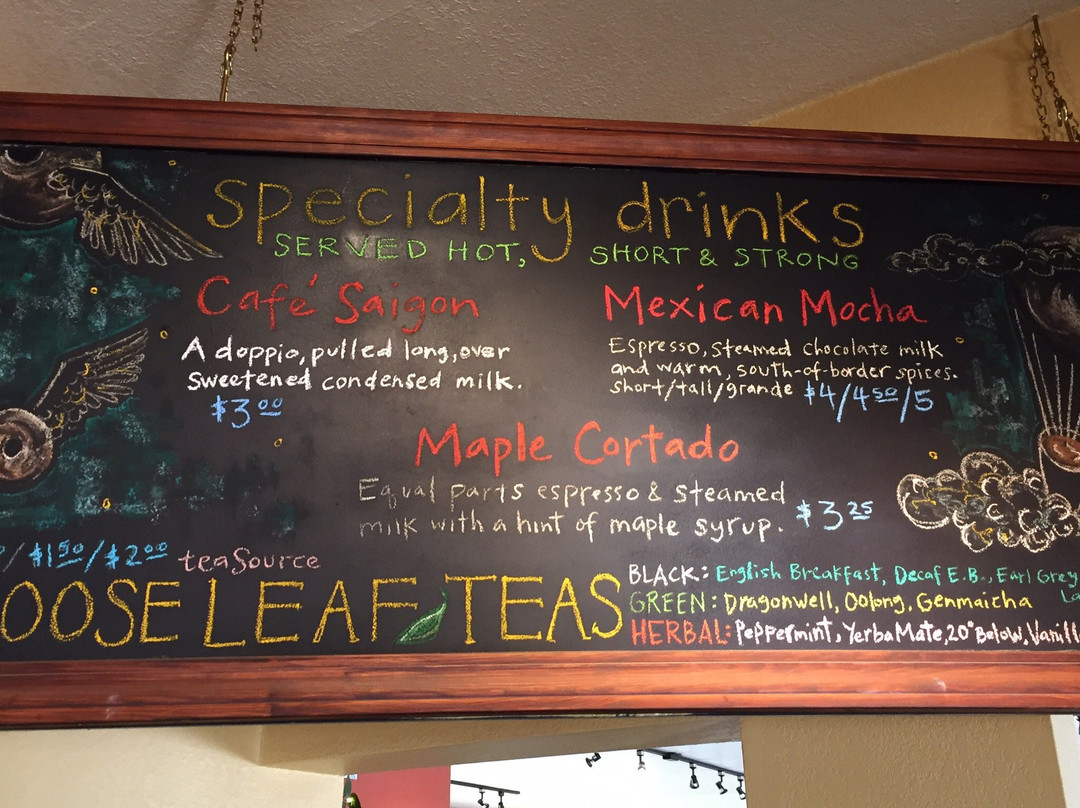 specialty drinks
SERVED HOT, SHORT & STRONG
Café Saigon
A doppio, pulled long, over
sweetened condensed milk.
$3 00
Mexican Mocha
Espresso, steamed chocolate milk
and warm, south-of-border spices.
short/tall/grande $4/4 50/5
Maple Cortado
Equal parts espresso & steamed
milk with a hint of maple syrup. $3 25
/$1 50/$2 00 teaSource
OOSE LEAF TEAS
BLACK: English Breakfast, Decaf E.B., Earl Grey
GREEN: Dragonwell, Oolong, Genmaicha
HERBAL: Peppermint, Yerba Mate, 20° Below, Vanill